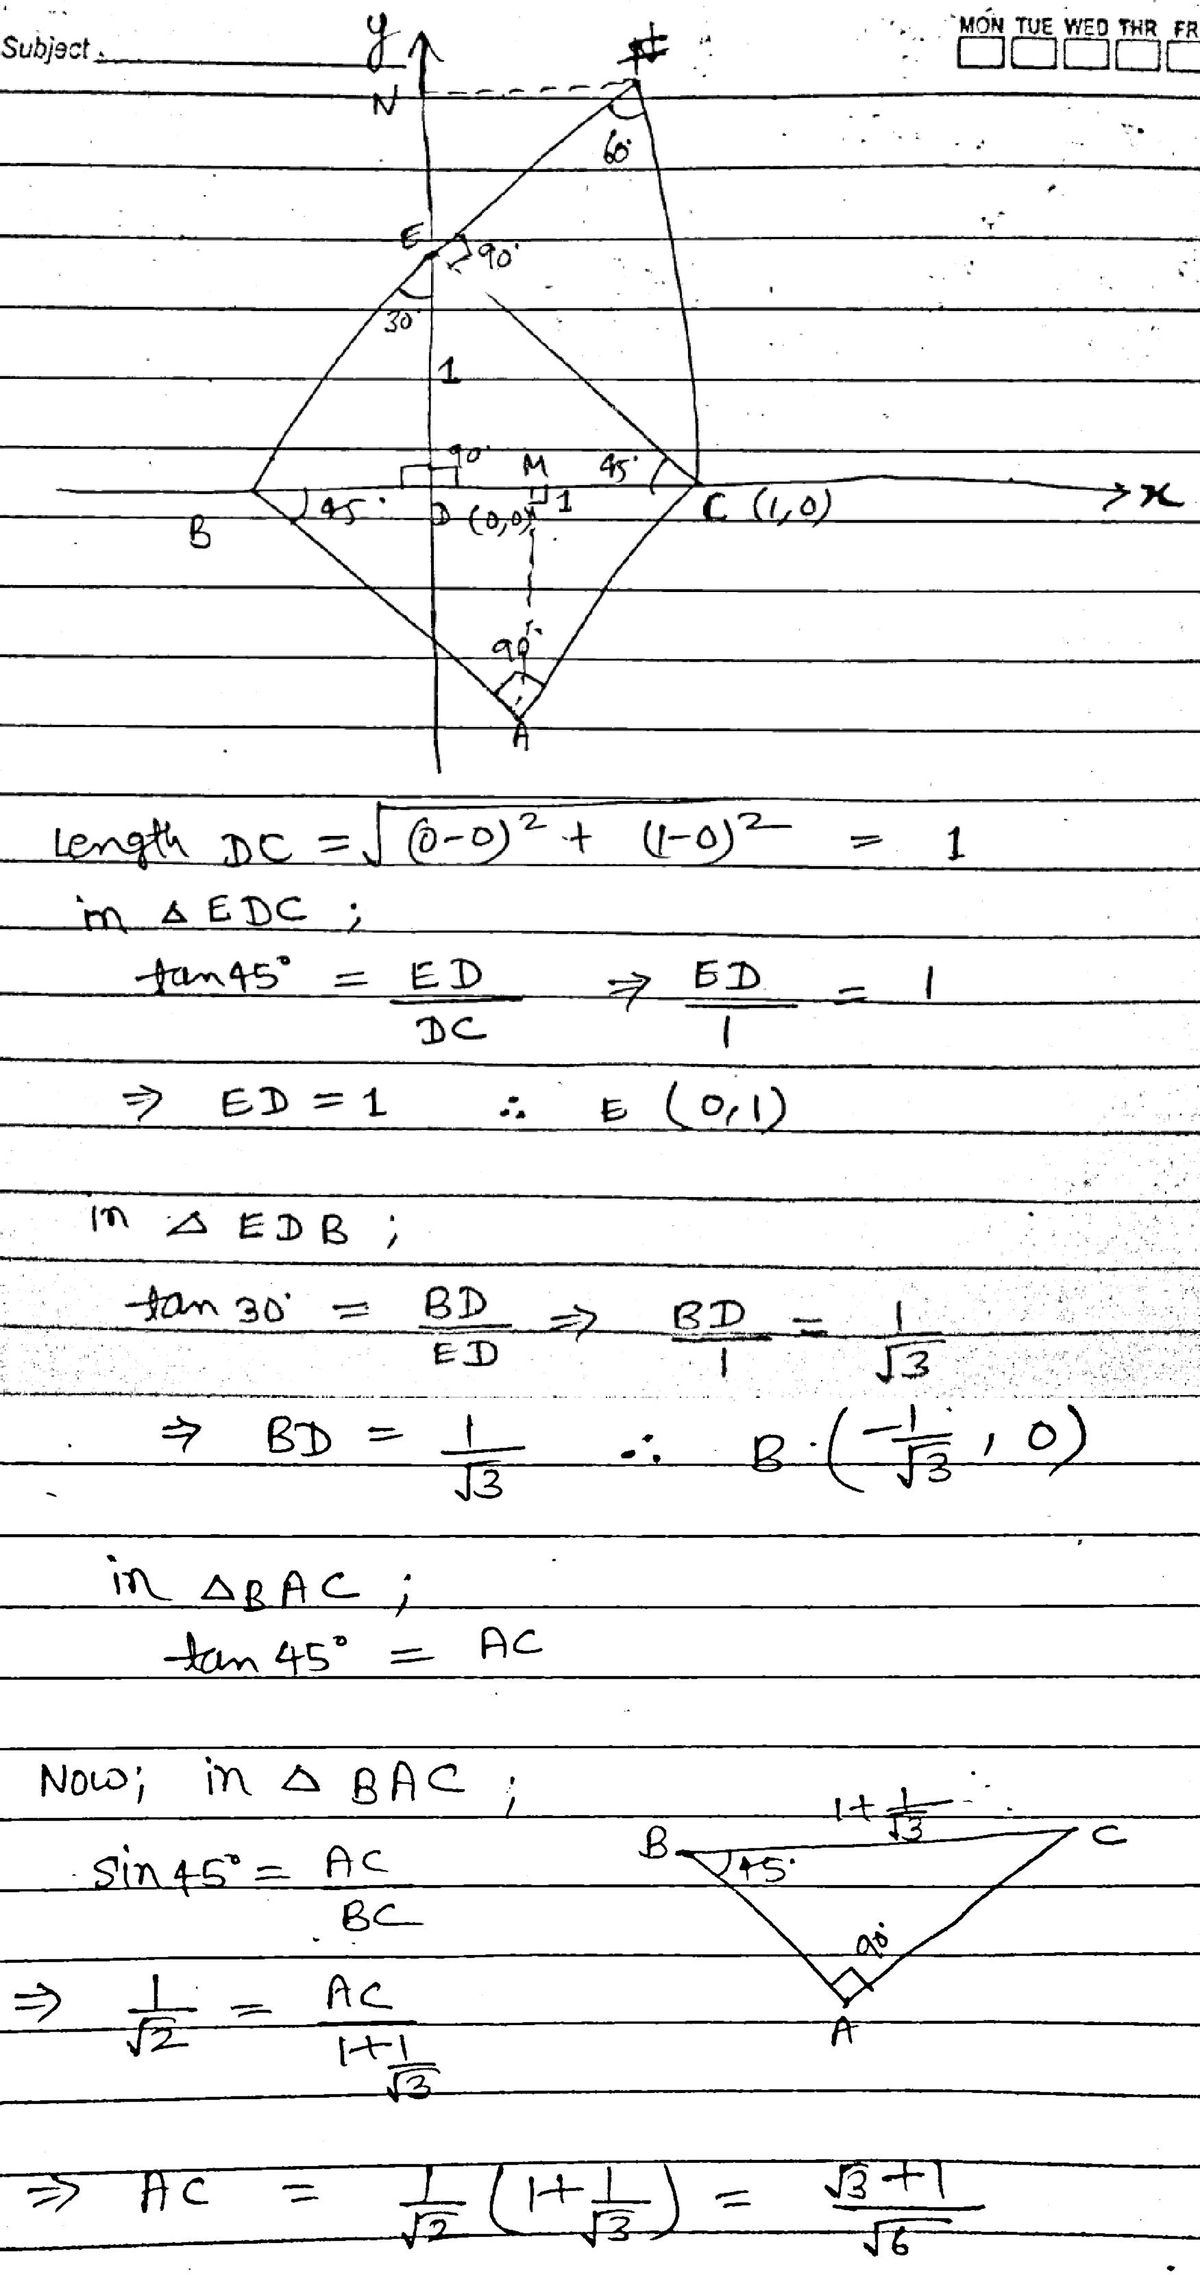 Subject :
MON TUE WED THR FR
y
N
60°
E
90°
30°
1
90°
M
45°
45°
D (0,0)
1
C (1,0)
x
B
90°
A
Length DC = √((0-0)² + (1-0)²) = 1
in △ EDC ;
tan 45° = ED/DC ⇒ ED/1 = 1
⇒ ED = 1 ∴ E (0,1)
in △ EDB ;
tan 30° = BD/ED ⇒ BD/1 = 1/√3
⇒ BD = 1/√3 ∴ B (-1/√3, 0)
in △BAC ;
tan 45° = AC
Now; in △ BAC ;
1+1/√3
B
C
45°
sin 45° = AC/BC
90°
⇒ 1/√2 = AC/(1+1/√3)
A
⇒ AC = 1/√2 (1+1/√3) = (√3+1)/√6